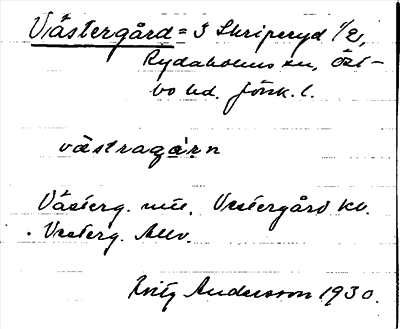 Västergård = 3 Skriperyd 1/2,
Rydaholms sn, Öst-
bo hd. Jönk. l.
västragàrn
Västerg. mtl. Vestergård kb.
Vesterg. Allv.
Fritz Andersson 1930.